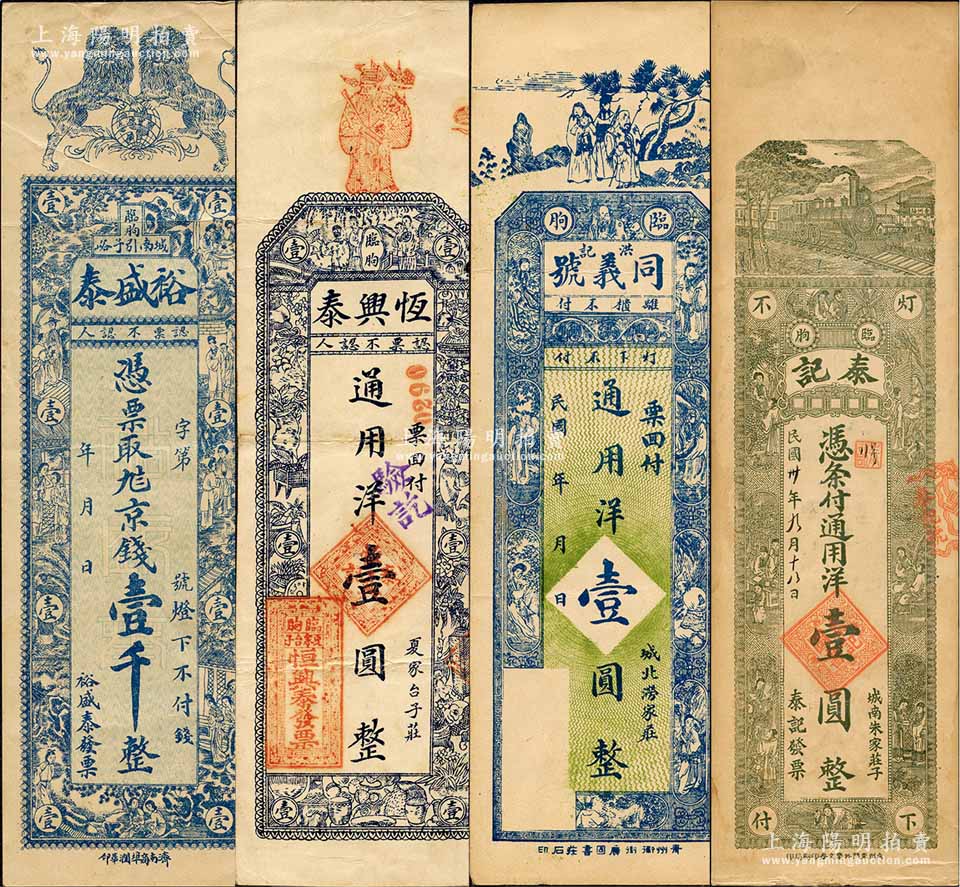 上海陽明拍賣
www.yangmingauction.com
上海陽明拍賣
www.yangmingauction.com
壹
壹
臨朐
城南引子峪
裕盛泰
認票不認人
字第
號燈下不付錢
憑票取九京錢壹千整
年月日
裕盛泰發票
壹
壹
壹
壹
壹
壹
濟南
印
壹
臨朐
壹
恆興泰
認票不認人
0620
票面付
夏家台子莊
通用洋壹圓整
驗訖
臨朐
恒興泰發票
壹
壹
壹
壹
臨
朐
洪記
同義號
離櫃不付
灯下不付
票面付
城北澇家莊
通用洋壹圓整
民國年月日
青州衛街廣固書莊石印
灯
不
臨
朐
泰記
憑条付通用洋壹圓整
民國卅年九月十八日
城南朱家莊子
泰記發票
下
付
上海陽明拍賣
www.yangmingauction.com